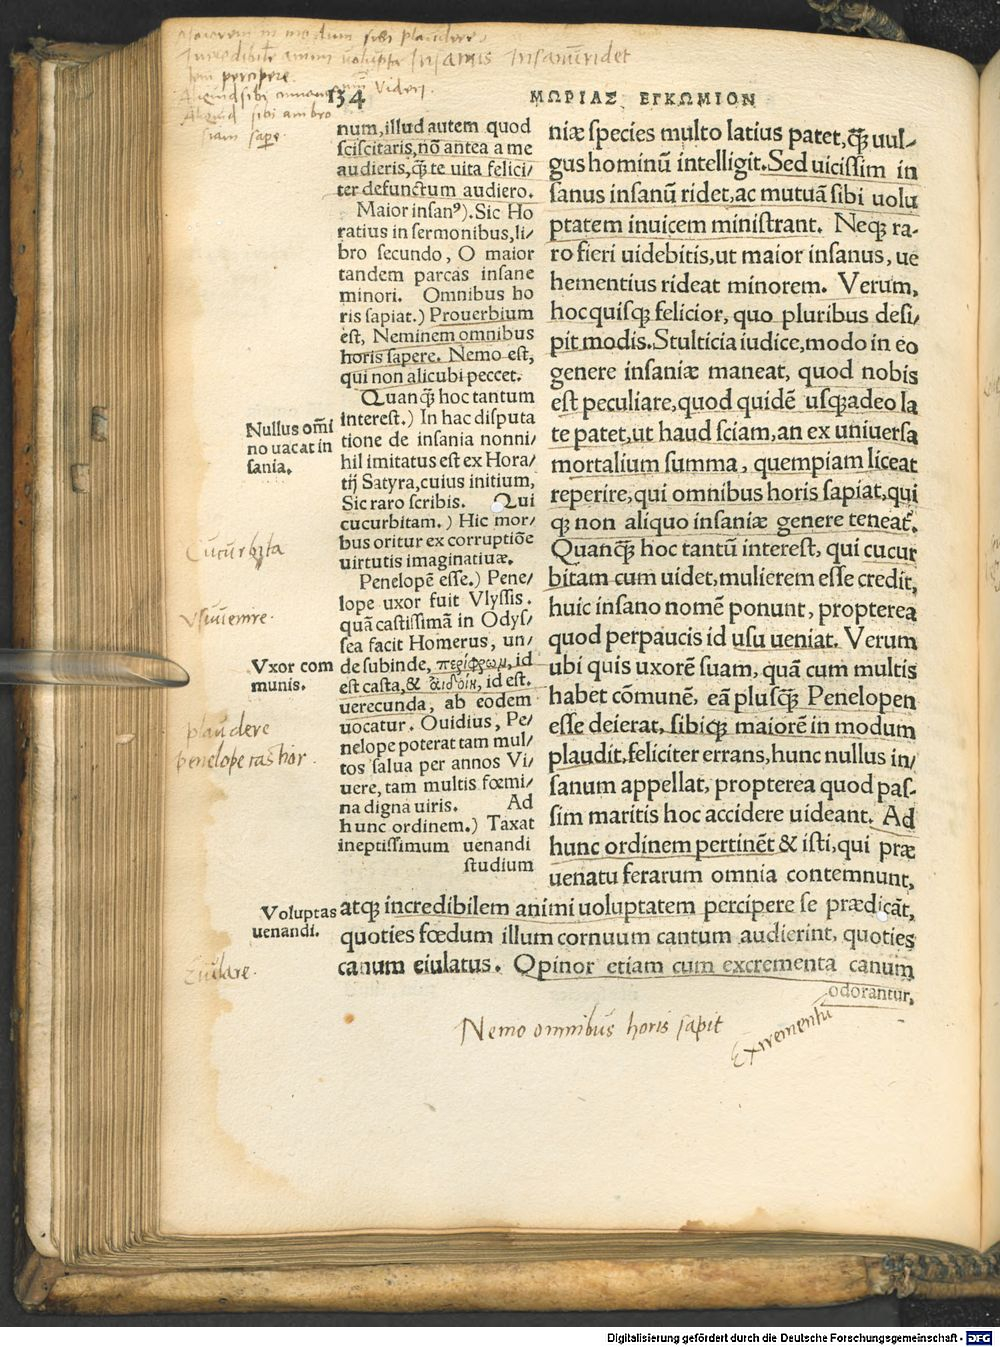 maiorem in modum sibi plaudere
Incredibile animi volupta Insanus Insanū ridet
tem percipere
videri
134
ΜΩΡΙΑΣ ΕΓΚΩΜΙΟΝ
num, illud autem quod
sciscitaris, nō antea a me
audieris, q̄ te uita felici/
ter defunctum audiero.
Maior insanꝰ). Sic Ho
ratius in sermonibus, li/
bro secundo, O maior
tandem parcas insane
minori. Omnibus ho
ris sapiat.) Prouerbium
est, Neminem omnibus
horis sapere. Nemo est,
qui non alicubi peccet.
Quanq̄ hoc tantum
interest.) In hac disputa
tione de insania nonni/
hil imitatus est ex Hora/
tij Satyra, cuius initium,
Sic raro scribis. Qui
cucurbitam.) Hic mor/
bus oritur ex corruptiōe
uirtutis imaginatiuæ.
Penelopē esse.) Pene/
lope uxor fuit Vlyssis.
quā castissimā in Odys/
sea facit Homerus, un/
de subinde, περίφρων, id
est casta, & id est.
uerecunda, ab eodem
uocatur. Ouidius, Pe/
nelope poterat tam mul/
tos salua per annos Vi/
uere, tam multis fœmi/
na digna uiris. Ad
hunc ordinem.) Taxat
ineptissimum uenandi
studium
Nullus om̄i
no uacat in
sania.
Cucurbita
Vxor com
munis.
plaudere
penelope
Voluptas
uenandi.
niæ species multo latius patet, q̄ uul/
gus hominū intelligit. Sed uicissim in
sanus insanū ridet, ac mutuā sibi uolu
ptatem inuicem ministrant. Neqꝫ ra-
ro fieri uidebitis, ut maior insanus, ue
hementius rideat minorem. Verum,
hoc quisqꝫ felicior, quo pluribus desi/
pit modis. Stulticia iudice, modo in eo
genere insaniæ maneat, quod nobis
est peculiare, quod quidē usqꝫadeo la
te patet, ut haud sciam, an ex uniuersa
mortalium summa, quempiam liceat
reperire, qui omnibus horis sapiat, qui
qꝫ non aliquo insaniæ genere teneat̄.
Quanq̄ hoc tantū interest, qui cucur
bitam cum uidet, mulierem esse credit,
huic insano nomē ponunt, propterea
quod perpaucis id usu ueniat. Verum
ubi quis uxorē suam, quā cum multis
habet cōmunē, eā plusq̄ Penelopen
esse deierat, sibiqꝫ maiorē in modum
plaudit, feliciter errans, hunc nullus in/
sanum appellat, propterea quod pas-
sim maritis hoc accidere uideant. Ad
hunc ordinem pertinēt & isti, qui præ
uenatu ferarum omnia contemnunt,
atqꝫ incredibilem animi uoluptatem percipere se prædicāt,
quoties fœdum illum cornuum cantum audierint, quoties
canum eiulatus. Opinor etiam cum excrementa canum
odorantur,
Nemo omnibus horis sapit
Digitalisierung gefördert durch die Deutsche Forschungsgemeinschaft - DFG